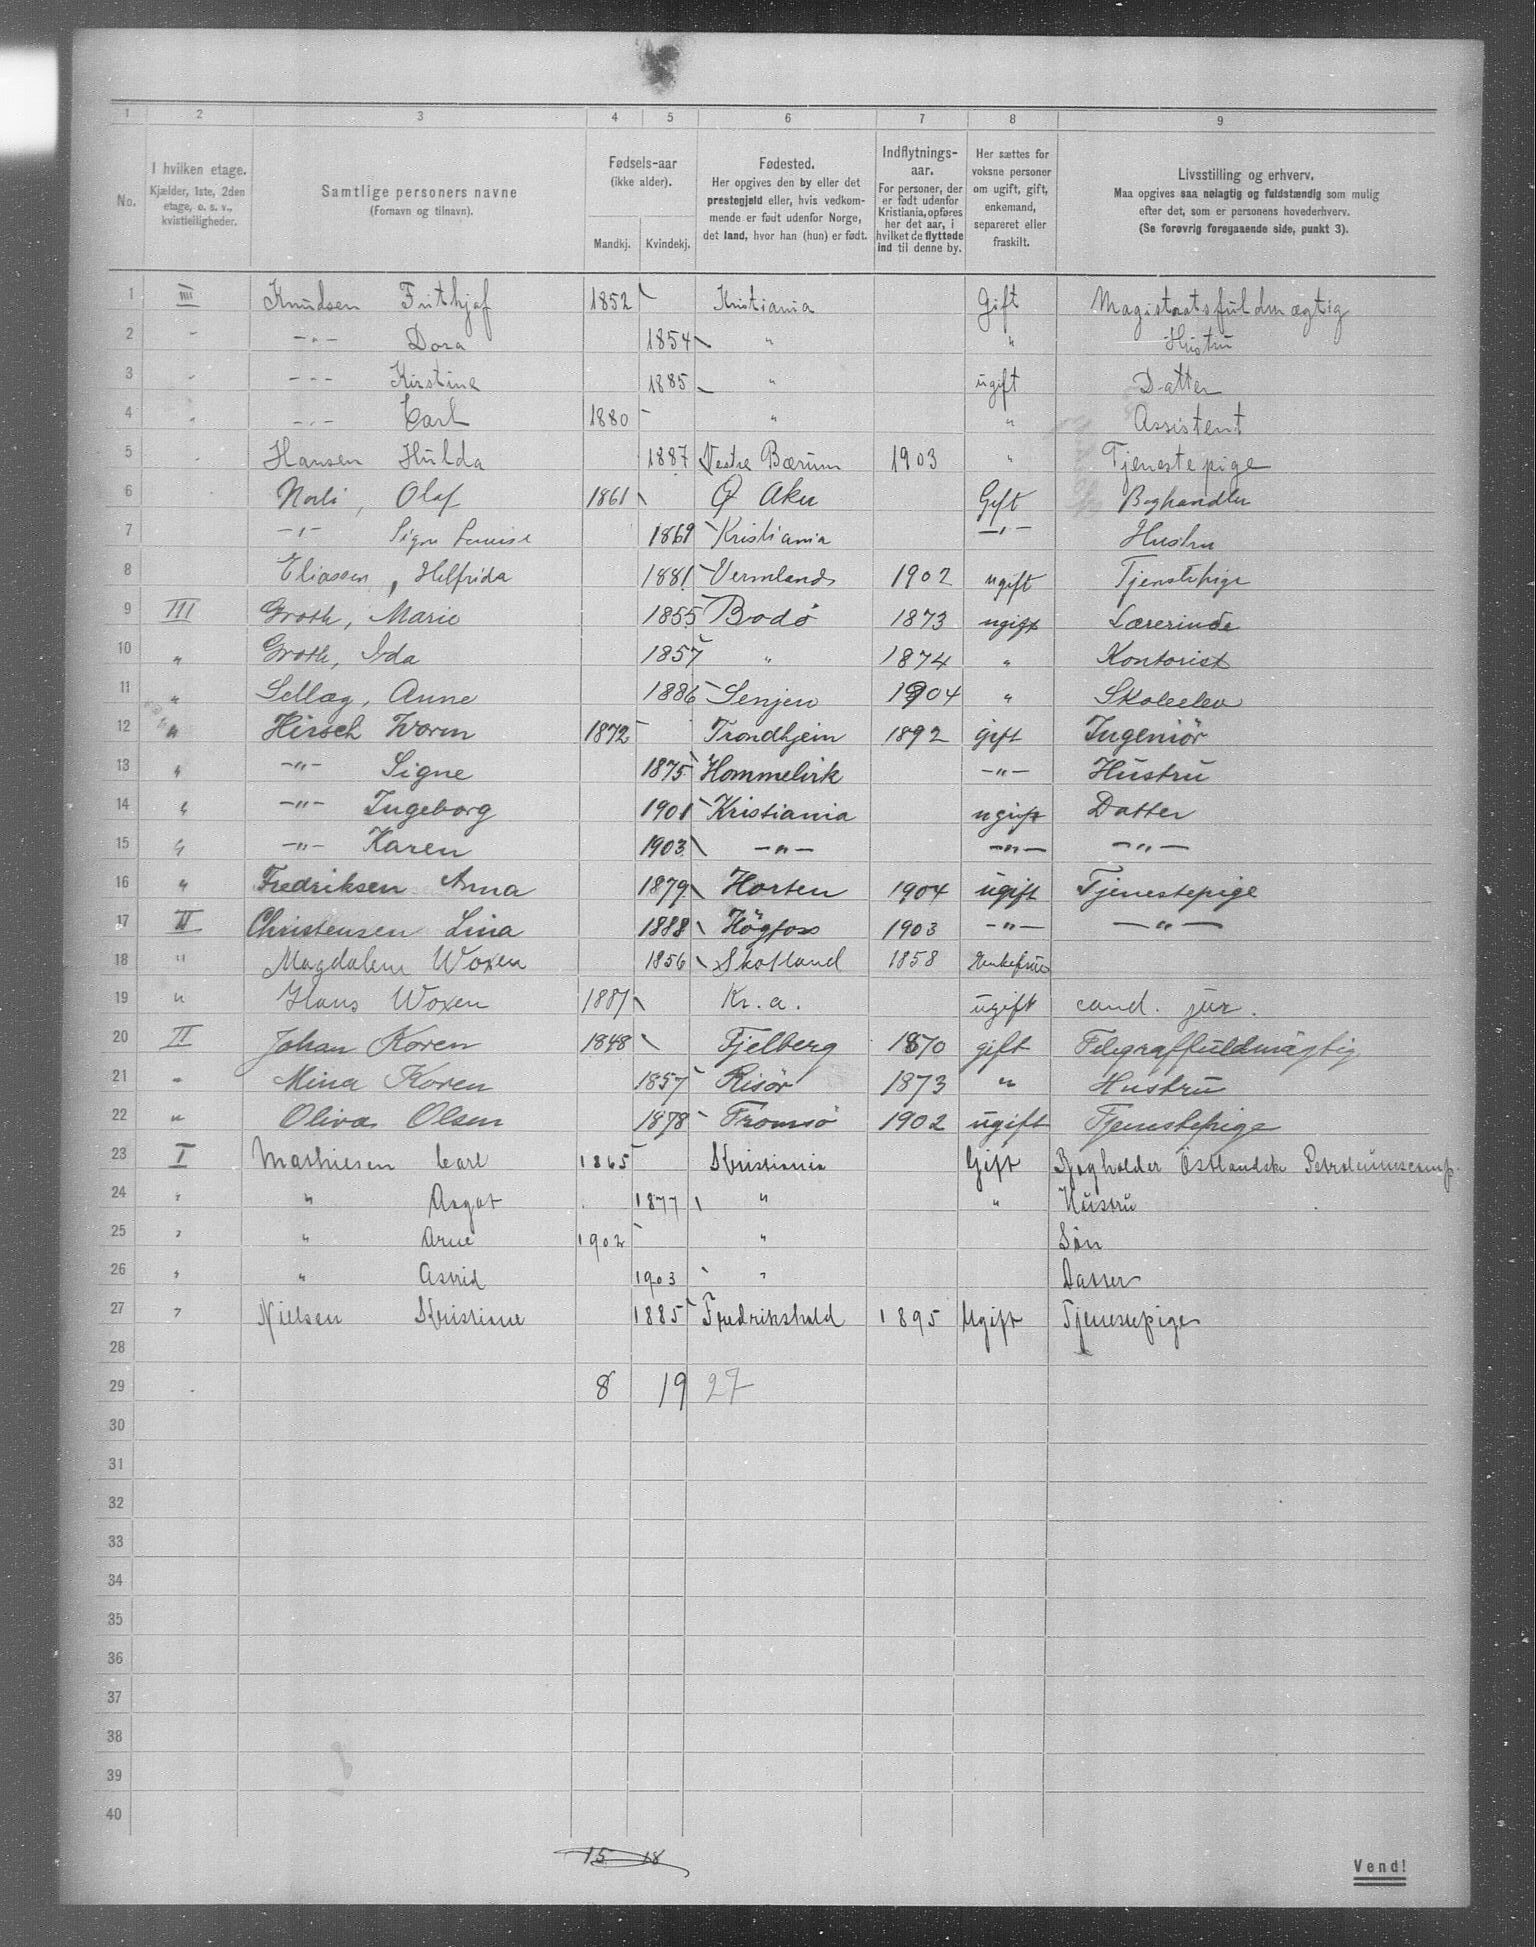 1 2 3 4 5 6 7 8 9
No.
I hvilken etage.
Kjælder, 1ste, 2den
etage, o. s. v.,
kvistleiligheder.
Samtlige personers navne
(Fornavn og tilnavn).
Fødsels-aar
(ikke alder).
Mandkj. Kvindekj.
Fødested.
Her opgives den by eller det
prestegjeld eller, hvis vedkom-
mende er født udenfor Norge,
det land, hvor han (hun) er født.
Indflytnings-
aar.
For personer, der
er født udenfor
Kristiania, opføres
her det aar, i
hvilket de flyttede
ind til denne by.
Her sættes for
voksne personer
om ugift, gift,
enkemand,
separeret eller
fraskilt.
Livsstilling og erhverv.
Maa opgives saa nøiagtig og fuldstændig som mulig
efter det, som er personens hovederhverv.
(Se forøvrig foregaaende side, punkt 3).
1 IIII Knudsen Frithjof 1852 Kristiania Gift Magistratsfuldmægtig
2 " —"— Dora 1854 " " Hustru
3 " —"— Kirstine 1885 " ugift Datter
4 " —"— Carl 1880 " " Assistent
5 Hansen Hulda 1887 Vestre Bærum 1903 " Tjenestepige
6 Norli, Olaf 1861 Ø Aker Gift Boghandler
7 —"— Signe Louise 1869 Kristiania —"— Hustru
8 Eliassen, Helfrida 1881 Vermland 1902 ugift Tjenstepige
9 III Groth, Marie 1855 Bodö 1873 ugift Lærerinde
10 " Groth, Ida 1857 " 1874 " Kontorist
11 " Sellæg, Anne 1886 Senjen 1904 " Skoleelev
12 " Hirsch Ivorm 1872 Trondhjem 1892 gift Ingeniör
13 " —"— Signe 1875 Hommelvik —"— Hustru
14 " —"— Ingeborg 1901 Kristiania ugift Datter
15 " —"— Karen 1903 —"— —"— —"—
16 " Fredriksen Anna 1879 Horten 1904 ugift Tjenestepige
17 II Christensen Lina 1888 Högfoss 1903 —"— —"—
18 " Magdalene Woxen 1856 Skotland 1858 Enkefrue
19 " Hans Woxen 1881 Kr.a. ugift cand. jur.
20 II Johan Koren 1848 Fjelberg 1870 gift Telegraffuldmägtig
21 " Mina Koren 1857 Risör 1873 " Hustru
22 " Oliva Olsen 1878 Tromsö 1902 ugift Tjenestepige
23 I Mathiesen Carl 1865 Kristiania Gift Bogholder Östlandske Petroleumscomp.
24 " " Asgot 1877 " " Hustru
25 " " Arne 1902 " Sön
26 " " Astrid 1903 " Datter
27 " Nielsen Kristiane 1885 Fredrikshald 1895 Ugift Tjenestepige
28
29 8 19 27
30
31
32
33
34
35
36
37
38
39
40
15 18
Vend!